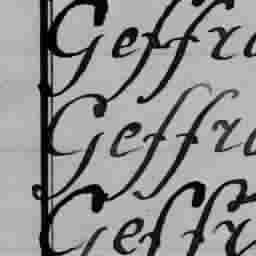 Geffra
Geffra
Geffr